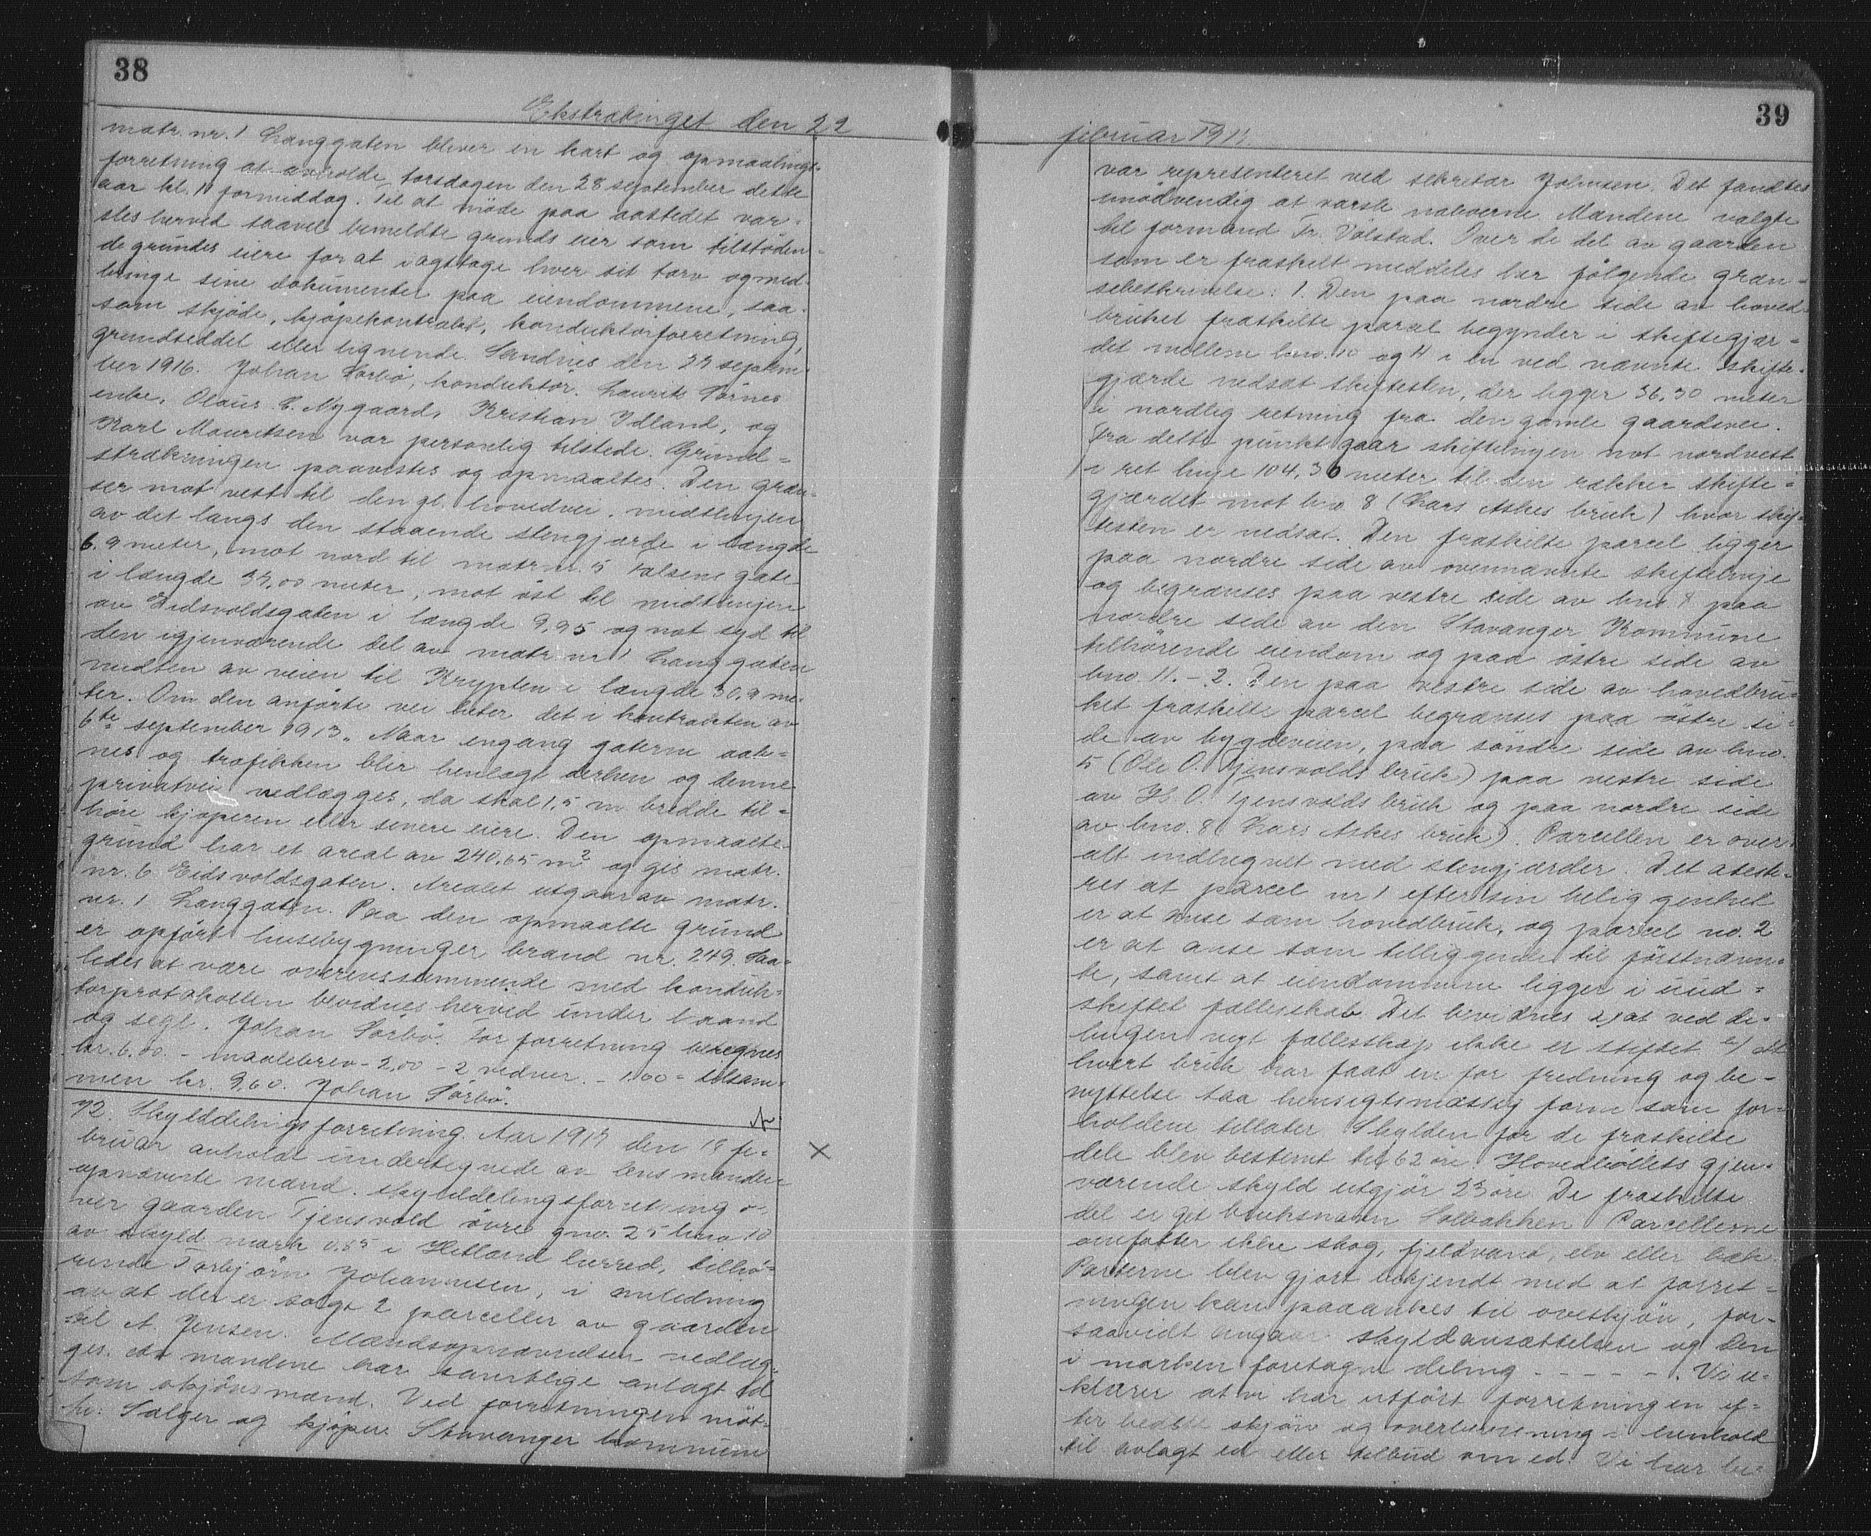 38
Ekstratinget den 22
matr. nr. 1 Langgaten bliver en kart og opmaalings-
forretning at avholde torsdagen den 28 september dette
aar kl. 11 formiddag. Til at møde paa aastedet var-
sles herved saavel bemeldte grunds eier som tilstøden-
de grundes eiere for at iagttage hver sit tarv og med-
bringe sine dokumenter paa eiendommene, saa-
som skjøde, kjøpekontrakt, konduktørforretning,
grundseddel eller lignende. Sandnes den 23 septem-
ber 1916. Johan Sørbø, konduktør. Laurits Tørnes
enke, Olaus E. Nygaard, Kristian Idland, og
Karl Mauritsen var personlig tilstede. Grund-
strækningen paavistes og opmaaltes. Den græn-
ser mot vest til den gl. hovedvei, midtlinjen
av det langs den staaende stengjærde i længde
6.9 meter, mot nord til matr. nr. 5 Olsens gate
i længde 33,00 meter, mot øst til midtlinjen
av Eidsvoldsgaten i længde 9,95 og mot syd til
den igjenværende del av matr. nr. 1 Langgaten
midten av veien til Krypten i længde 30,9 me-
ter. Om den anførte vei heter det i kontrakten av
6te september 1913. "Naar engang gaterne aab-
nes og trafikken blir henlagt derhen og denne
privatvei nedlægges, da skal 1,5 m bredde til-
høre kjøperen eller senere eiere. Den opmaalte
grund har et areal av 240,65 m2 og gis matr.
nr. 6 Eidsvoldsgaten. Arealet utgaar av matr.
nr. 1 Langgaten. Paa den opmaalte grund
er opført husebygninger brand nr. 249. Saa-
ledes at være overensstemmende med konduk-
tørprotokollen bevidnes herved under haand
og segl. Johan Sørbø. For forretning beregnes
kr. 6.00. - maalebrev - 2,00 - 2 vidner. - 1.60 = tilsam-
men kr. 9,60. Johan Sørbø.
72. Skylddelingsforretning. Aar 1917 den 19 fe-
bruar avholdt undertegnede av lensmanden
opnævnte mænd skylddelingsforretning o-
ver gaarden Tjensvold øvre gno. 25 bno 10
av skyld mark 0.85 i Hetland herred, tilhø-
rende Torbjørn Johannesen, i anledning
av at der er solgt 2 parceller av gaarden
til A. Jensen. Mændsopnævnelsen vedlæg-
ges. Av mændene har samtlige avlagt ed
som skjønsmænd. Ved forretningen møt-
te: Sælger og kjøper. Stavanger kommune
39
februar 1917.
var representeret ved sekretær Johnsen. Det fandtes
unødvendig at varsle naboerne. Mændene valgte
til formand Fr. Vølstad. Over de del av gaarden
som er fraskilt meddeles her følgende græn-
sebeskrivelse: 1. Den paa nordre side av hoved-
bruket fraskilte parcel begynder i skiftegjær-
det mellem bno. 10 og 11 i en ved nævnte skifte-
gjærde nedsat skiftesten, der ligger 36,30 meter
i nordlig retning fra den gamle gaardsvei.
Fra dette punkt gaar skiftelinjen mot nordvest
i ret linje 104,36 meter til den rækker skifte-
gjærdet mot bno 8 (Lars Askes bruk) hvor skif-
testen er nedsat. Den fraskilte parcel ligger
paa nordre side av ovennævnte skiftelinje
og begrænses paa vestre side av bno 8 paa
nordre side av den Stavanger Kommune
tilhørende eiendom og paa østre side av
bno 11. - 2. Den paa vestre side av hovedbru-
ket fraskilte parcel begrænses paa østre si-
de av bygdeveien, paa søndre side av bno.
5 (Ole O. Tjensvolds bruk) paa vestre side
av H. O. Tjensvolds bruk og paa nordre side
av bno. 8 (Lars Askes bruk). Parcellen er over-
alt indhegnet med stengjærder. Det atest-
eres at parcel nr 1 efter sin beliggenhet
er at anse som hovedbruk, og parcel no. 2
er at anse som tilliggende til førstnævn-
te, samt at eiendommene ligger i uud-
skiftet fællesskab. Det bevidnes a) at ved de-
lingen nyt fællesskap ikke er stiftet b) at
hvert bruk har faat en for fredning og be-
nyttelse saa hensigtsmæssig form som for-
holdene tillater. Skylden for de fraskilte
dele blev bestemt til 62 øre. Hovedbølets gjen-
værende skyld utgjør 23 øre. De fraskilte
del er git bruksnavn Solbakken. Parcellerne
omfatter ikke skog, fjeldvand, elv eller bæk.
Parterne blev gjort bekjendt med at forret-
ningen kan paaankes til overskjøn, for-
saavidt angaar skyldansættelsen og den
i marken foretagne deling - - - - - . Vi er-
klærer at vi har utført forretningen ef-
ter bedste skjøn og overbevisning i henhold
til avlagt ed eller tilbud om ed. Vi har be-